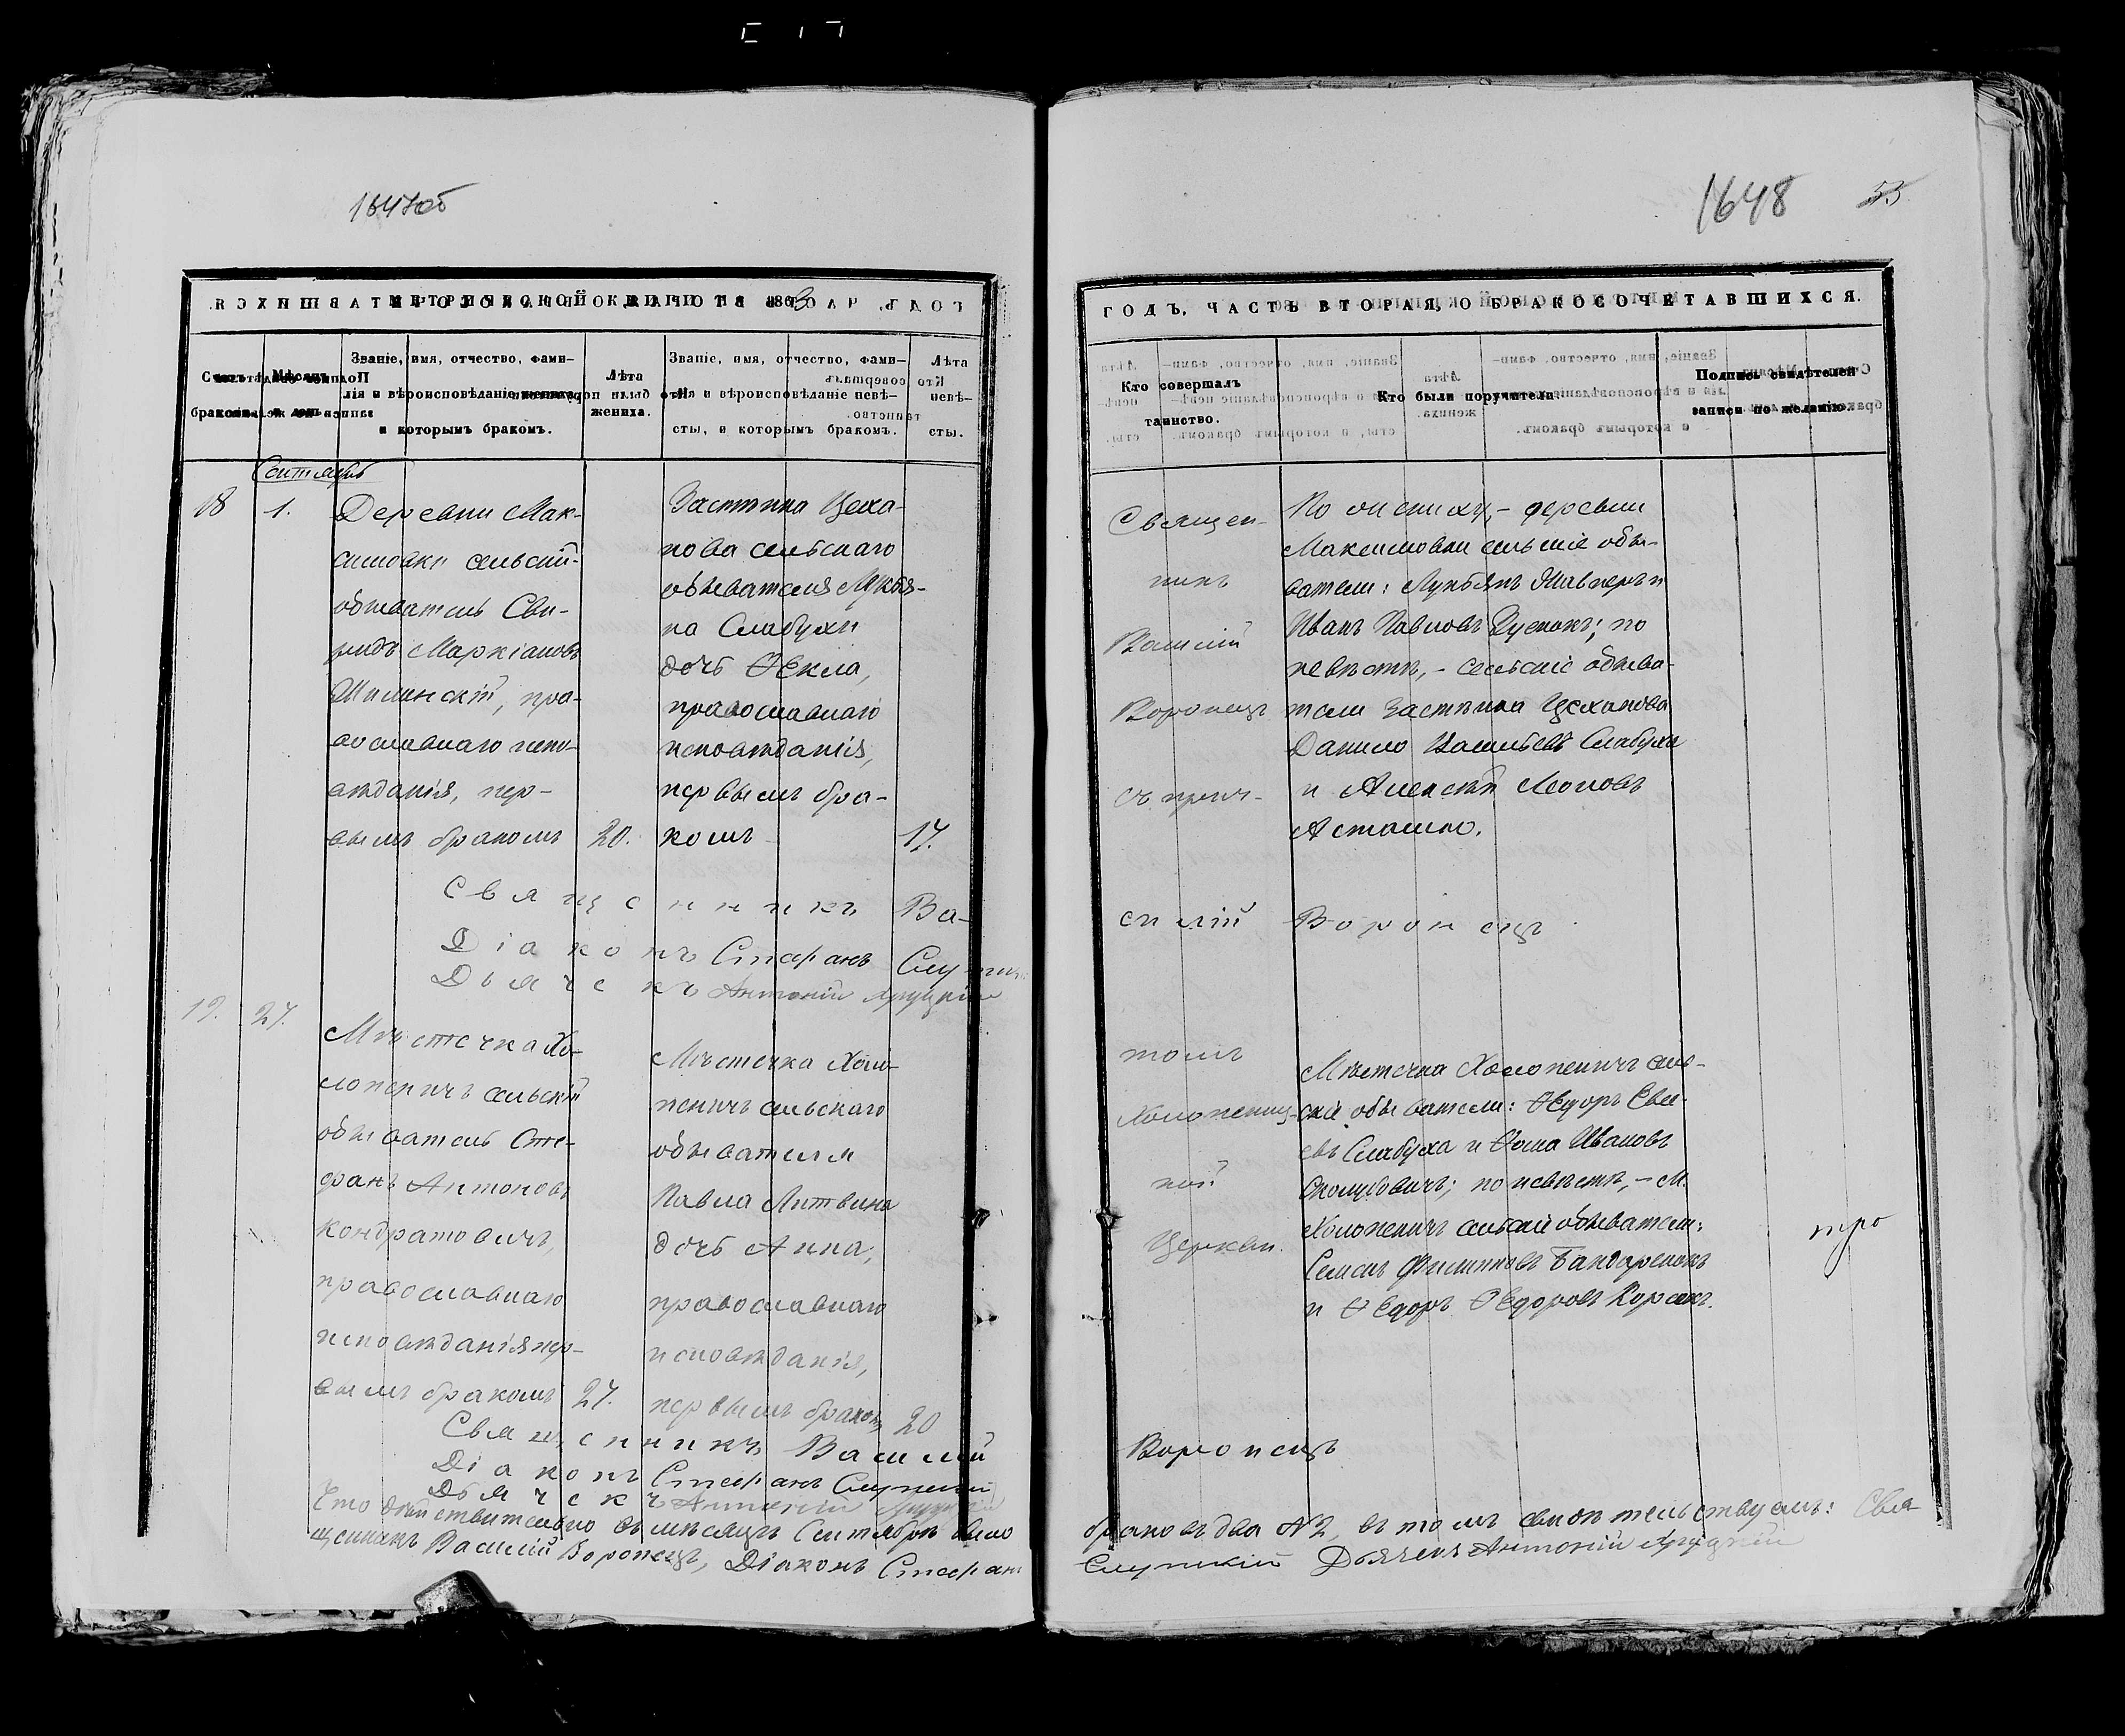 1647об
МЕТРИЧЕСКОЙ КНИГИ НА 186
Счетъ браковъ.
Мѣсяцъ и день.
Званіе, имя, отчество, фами-
лія и вѣроисповѣданіе жениха,
и которымъ бракомъ.
Лѣта
жениха.
Званіе, имя, отчество, фами-
лія и вѣроисповѣданіе невѣ-
сты, и которымъ бракомъ.
Лѣта
невѣ-
сты.
Сентябрь
18
1.
Деревни Мак-
симовки сельскій
обыватель Сви-
ридъ Маркіановъ
пра-
вославнаго испо-
вѣданія, пер-
вымъ бракомъ
20.
Застѣнка Цеха-
нова сельскаго
обывателя Лукья-
на Слабухи
дочь Ѳекла,
православнаго
исповѣданія,
первымъ бра-
комъ
17.
Священникъ Ва-
Діаконъ Стефанъ
Дьячекъ Антоній
19.
27.
Мѣстечка Хо-
лопеничъ сельскій
обыватель Сте-
фанъ Антоновъ
Кондратовичъ,
православнаго
исповѣданія пер-
вымъ бракомъ
27.
Мѣстечка Холо-
пеничъ сельскаго
обывателя
Павла Литвина
дочь Анна,
православнаго
исповѣданія,
первымъ бракомъ
20
Священникъ Василій
Діаконъ Стефанъ Слупскій
Дьячекъ Антоній
Что дѣйствительно въ мѣсяцѣ Сентябрѣ было
щенникъ Василій Воронецъ, Діаконъ Стефанъ
1648
53
ГОДЪ, ЧАСТЬ ВТОРАЯ, О БРАКОСОЧЕТАВШИХСЯ.
Кто совершалъ
таинство.
Кто были поручители.
Подпись свидѣтелей
записи по желанію.
Священ-
никъ
Василій
Воронецъ
съ прич-
По женихѣ, – деревни
Максимовки сельскіе обы-
ватели: Лукьянъ и
Иванъ Павловъ по
невѣстѣ, – сельскіе обыва-
тели Застѣнка Цеханова
Данило Васильевъ Слабуха
и Алексѣй Леоновъ
Асташко.
силій Воронецъ
томъ
Холопенич-
ной
Церкви.
Мѣстечка Холопеничъ сель-
скіе обыватели: Ѳедоръ
Слабуха и Ѳома Ивановъ
по невѣстѣ, – М.
Холопеничъ сельскіе обыватели:
Семенъ Филиповъ Бандаренокъ
и Ѳедоръ Ѳедоровъ Корсакъ.
Воронецъ
браковъ два № 2, въ томъ свидѣтельствуемъ: Свя-
Слупскій Дьячекъ Антоній